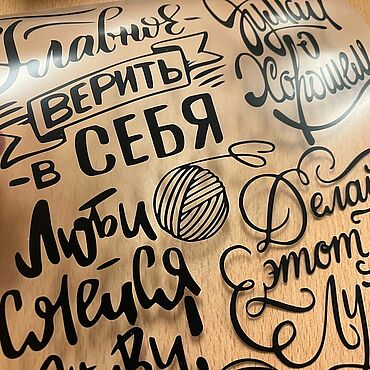 Главное-
ВЕРИТЬ
-в СЕБЯ
Думай
о
Хорошем
Люби
смейся
живи!
Делай
этот